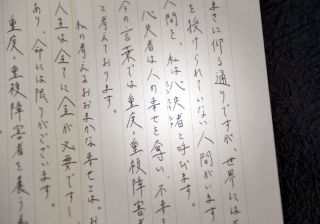 まさに仰る通りですが、世界には
を授けられていない人間がいます
人間を、私は心失者と呼びます。
心失者は人の幸せを奪い、不幸
今の言葉では重度・重複障害者
と考えております。
私の考えるおおまかな幸せとは、お
人生は全てに金が必要です
あり、命には限りがございます。
重度・重複障害者を養う